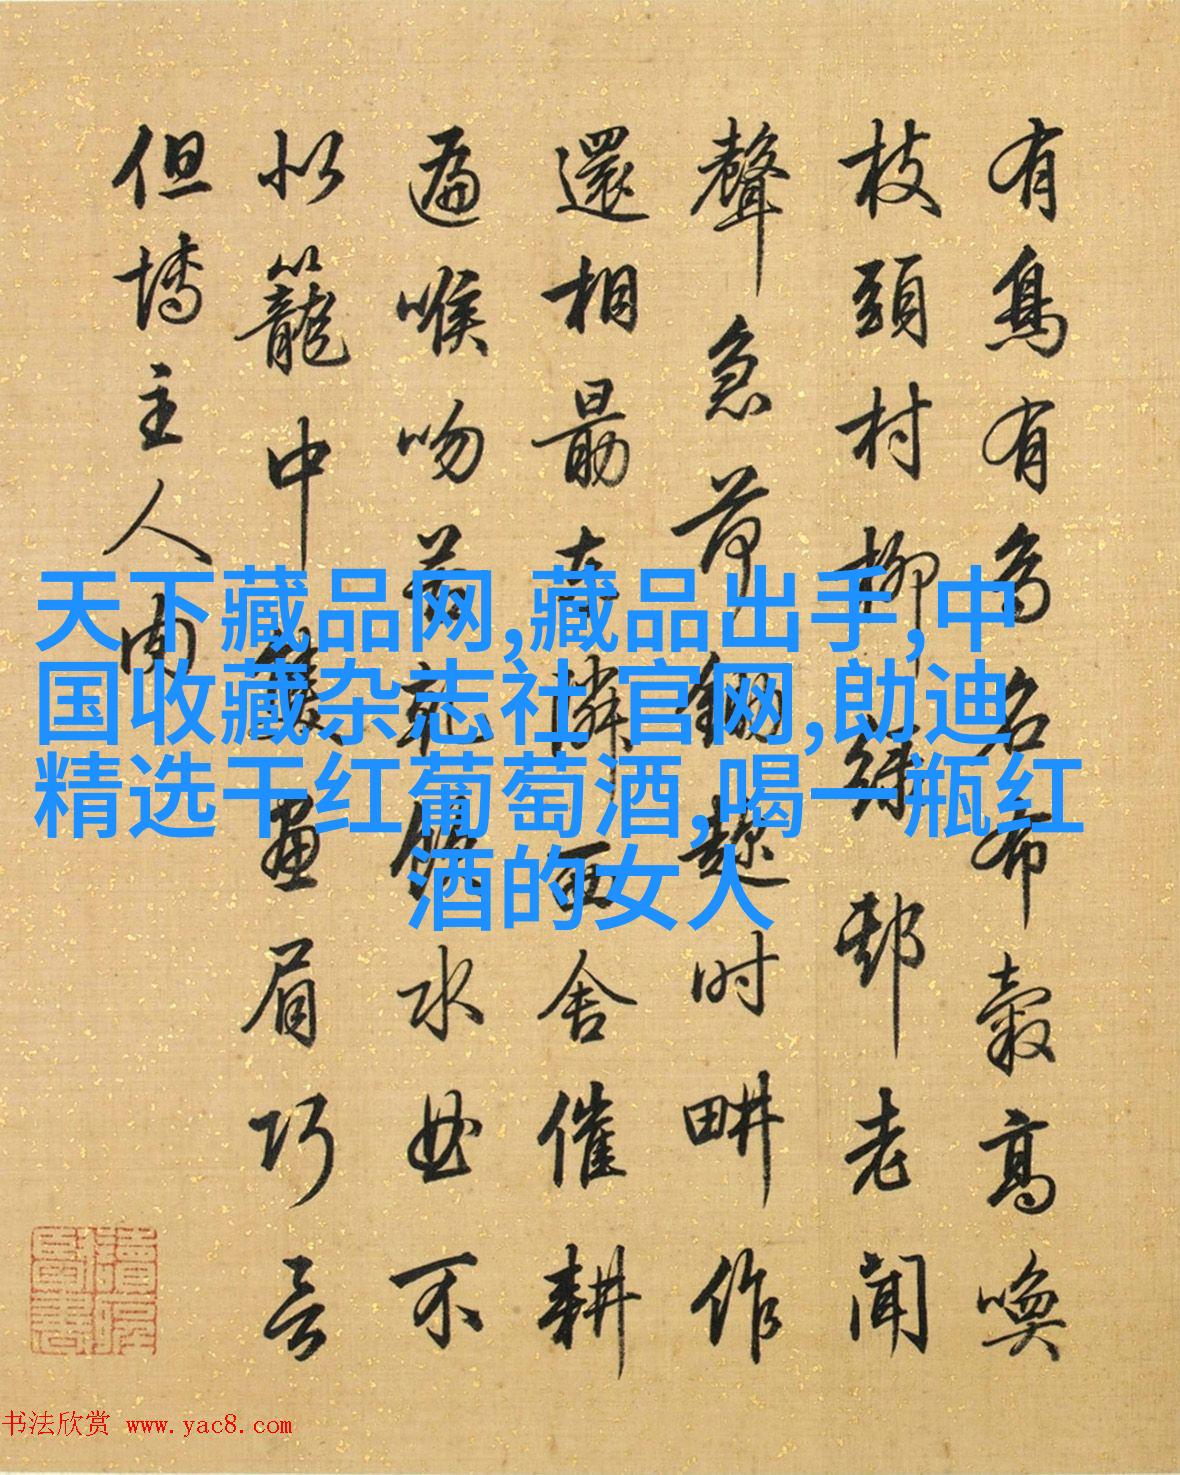 天下藏品网,藏品出手,中
国收藏杂志社官网,勛迪
精选干红葡萄酒,喝一瓶红
酒的女人
有鳥有鳥名布穀高喚
枝頭村柳綠老聞
聲急荷鋤趂時畊作
還相勗東隣西舍催耕
遍喉吻乾飲水不
似籠中畫眉巧言
但博主人肉
书法欣赏 www.yac8.com